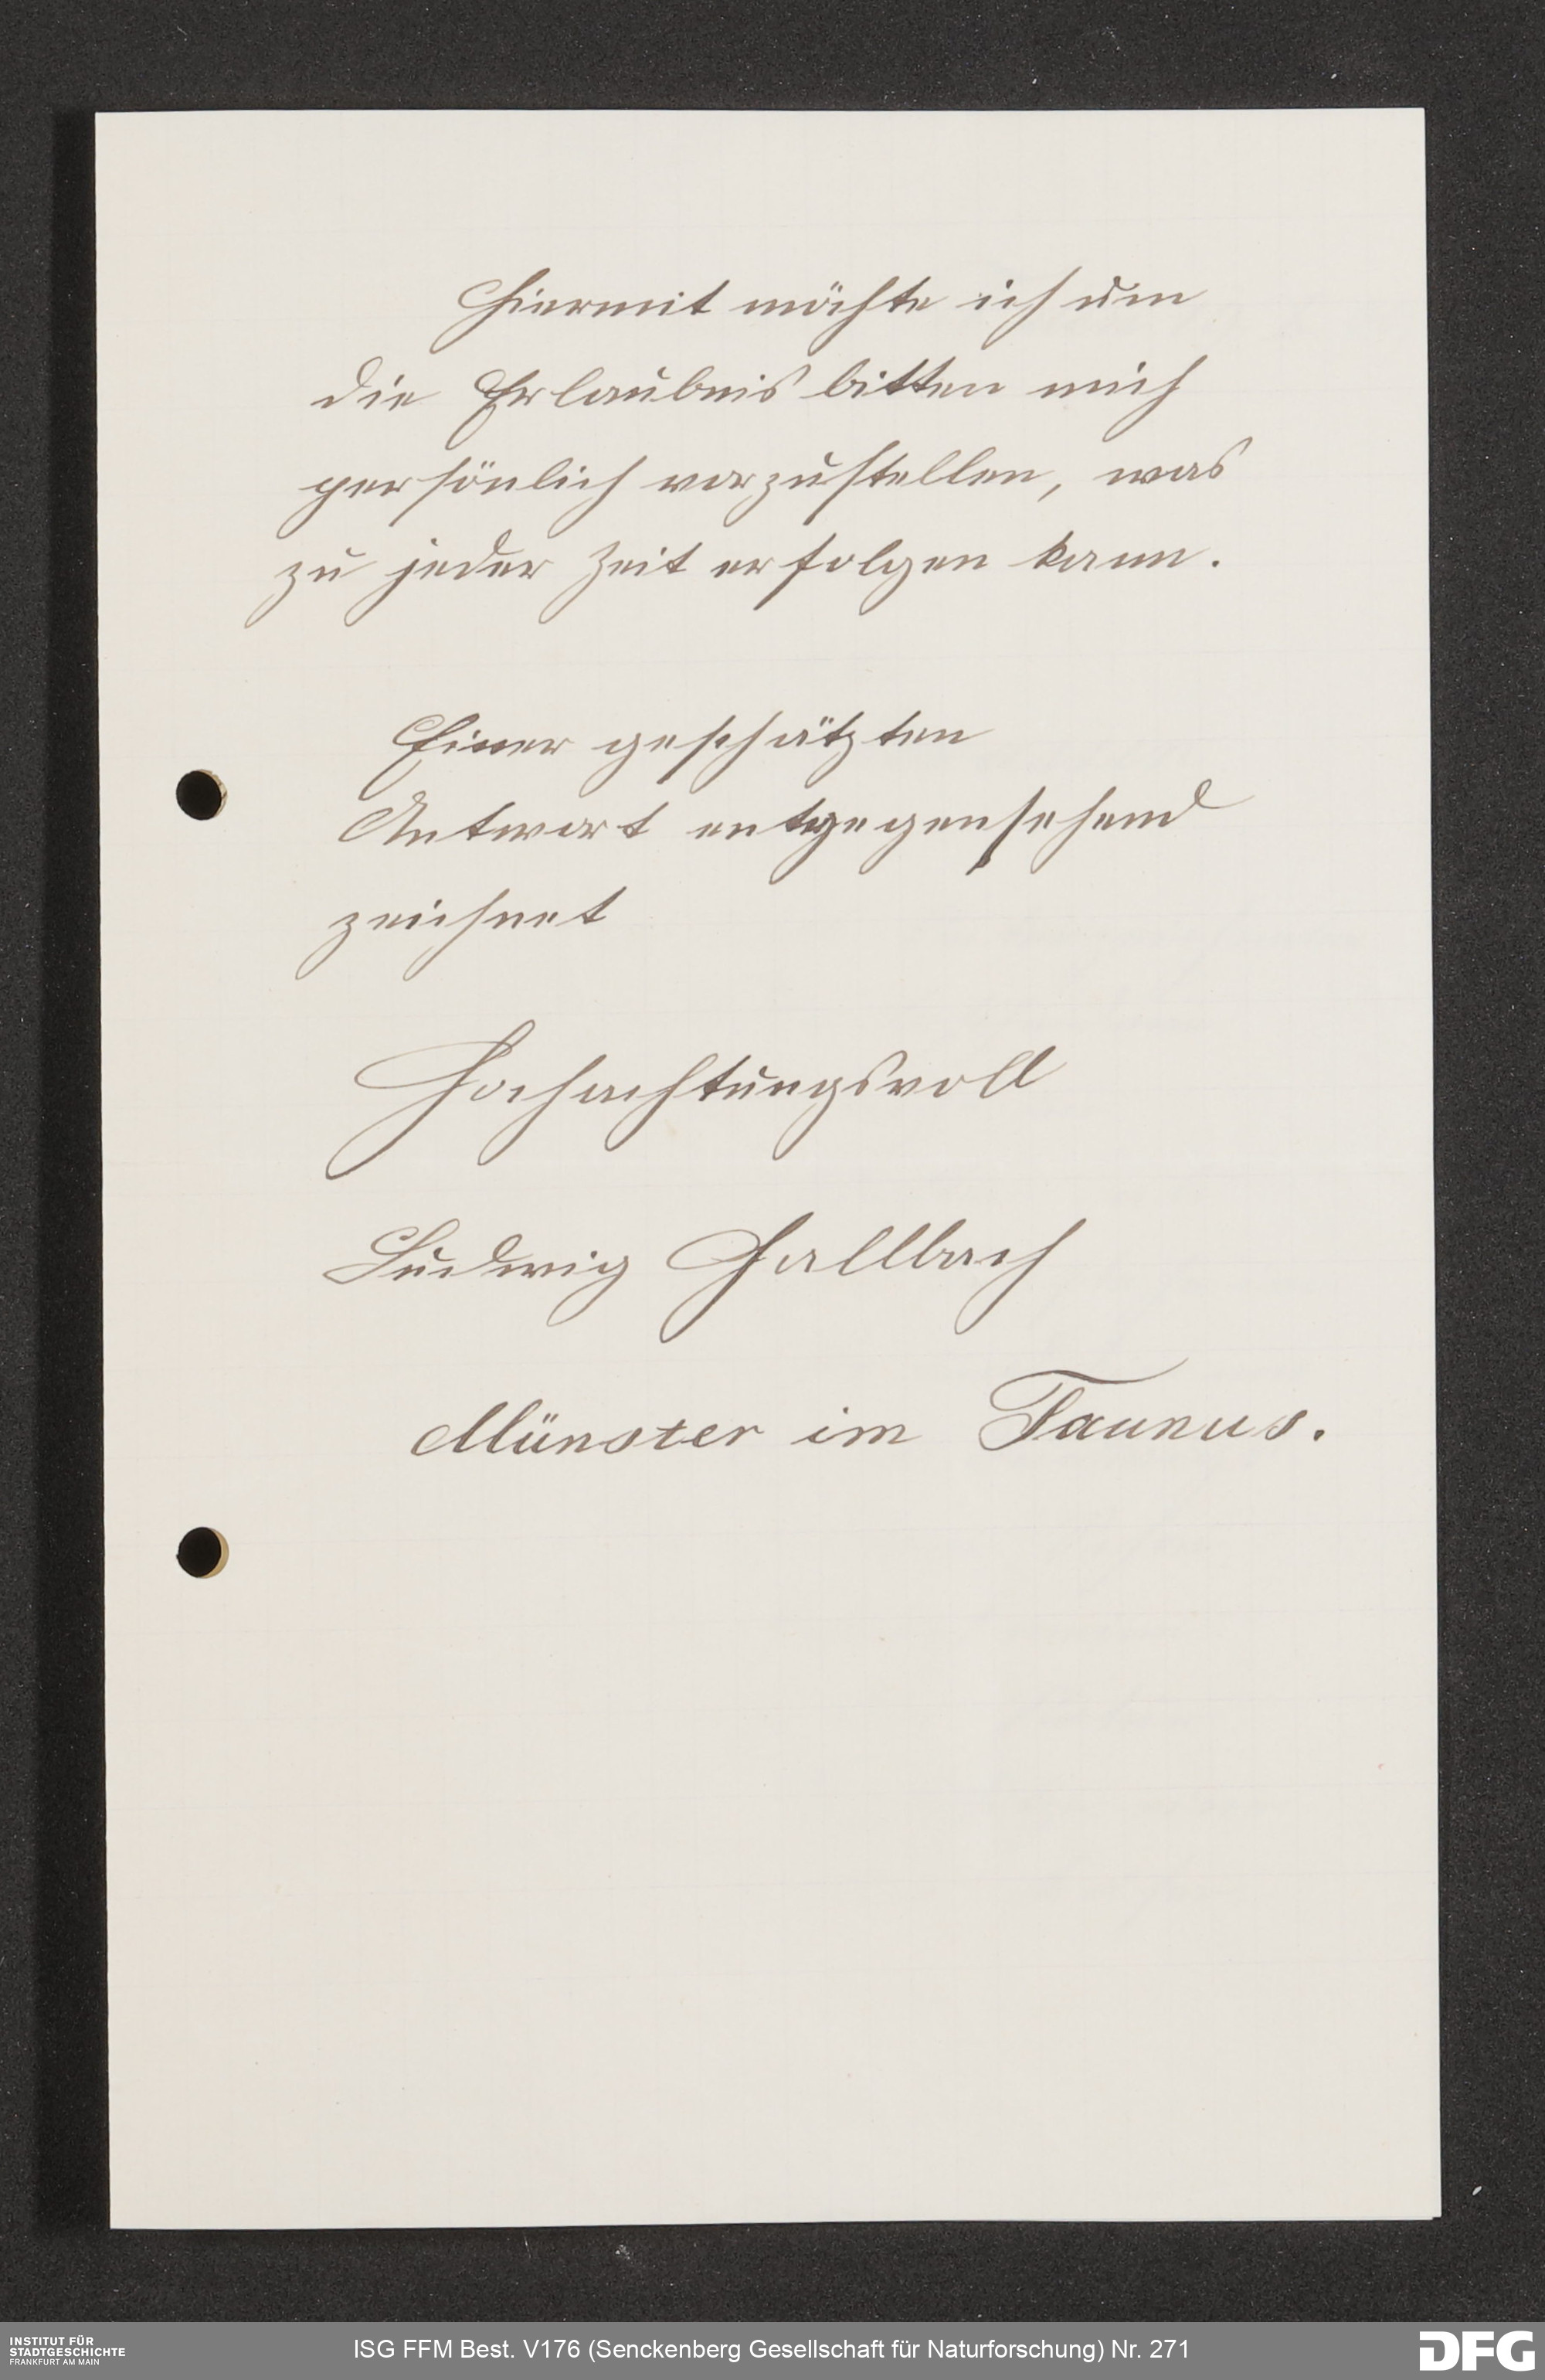 Hiermit möchte ich um
die Erlaubnis bitten mich
persönlich vorzustellen, was
zu jeder Zeit erfolgen kann.
Einer geschätzten
Antwort entgegensehend
zeichnet
Hochachtungsvoll
Ludwig Hallbach
Münster im Taunus.
INSTITUT FÜR
STADTGESCHICHTE
FRANKFURT AM MAIN
ISG FFM Best. V176 (Senckenberg Gesellschaft für Naturforschung) Nr. 271
DFG